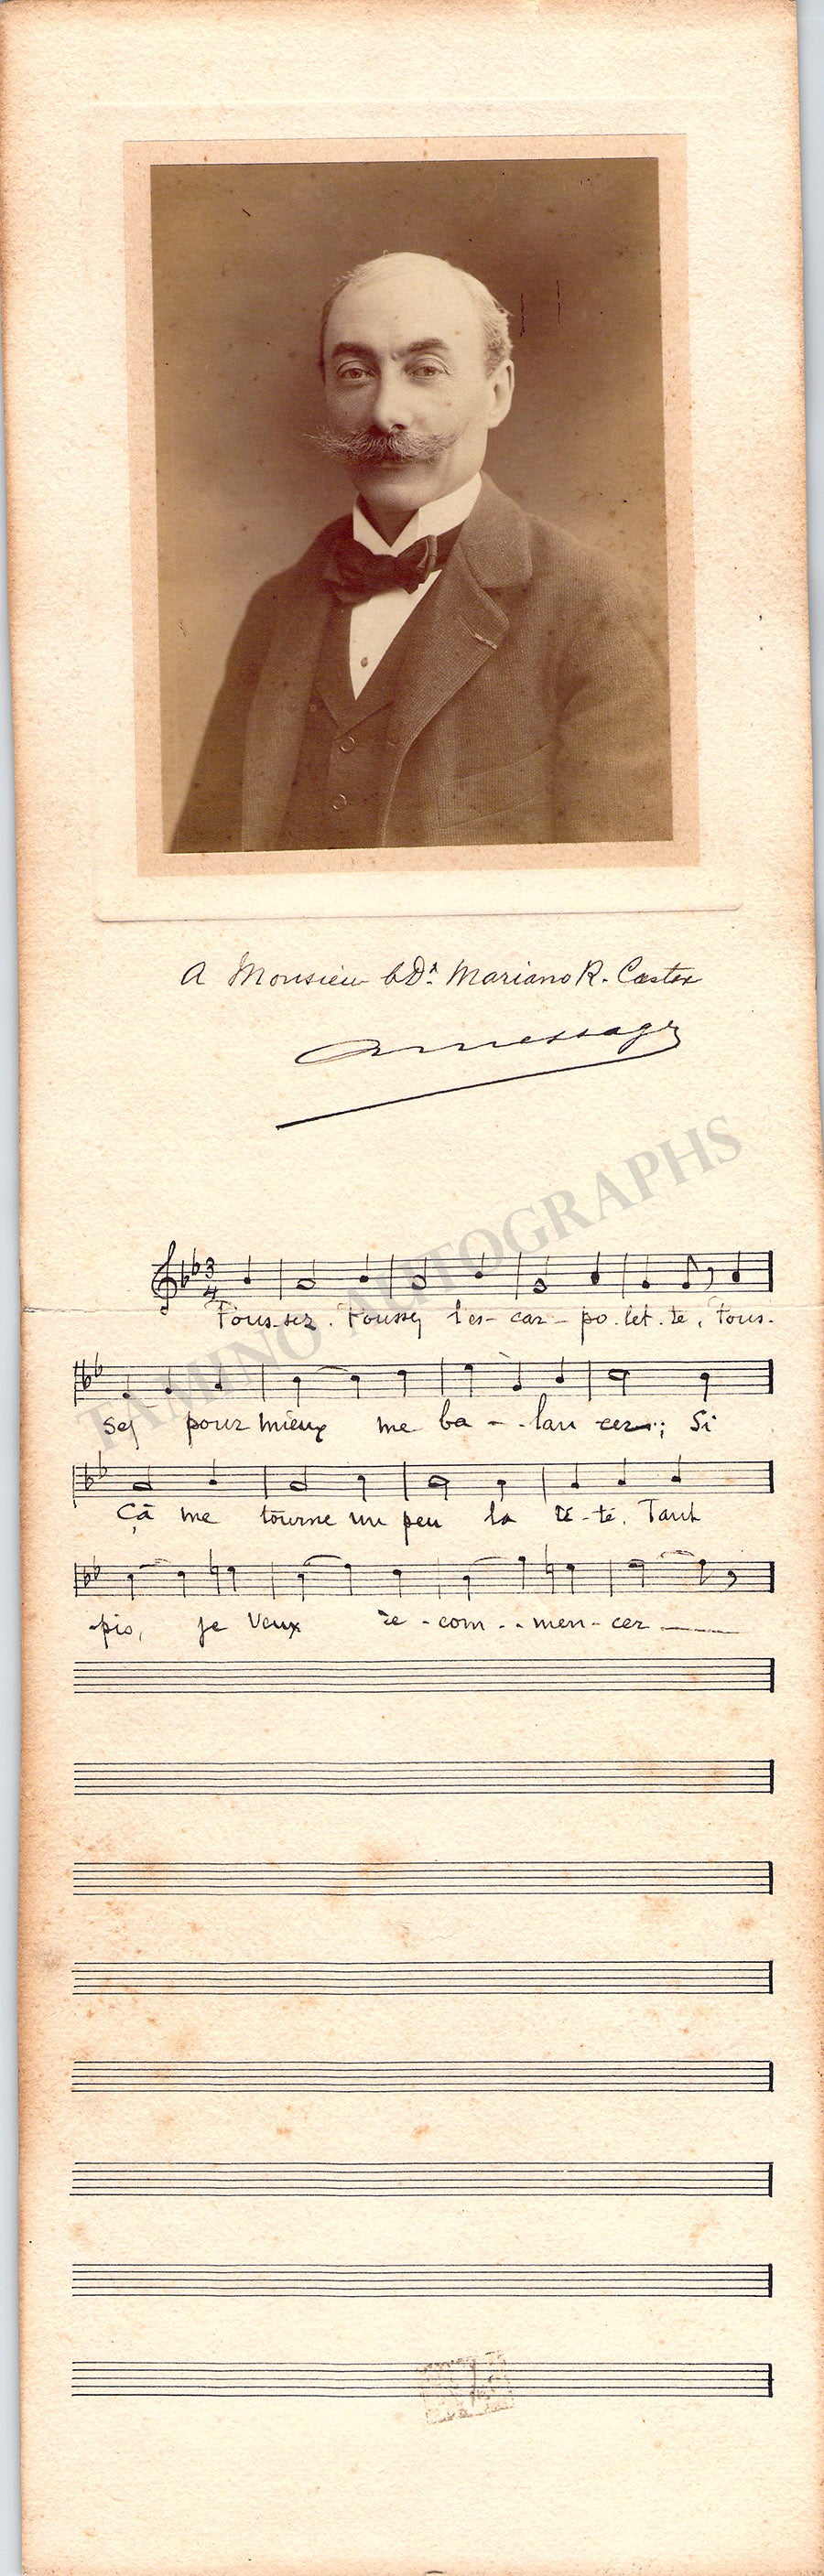 A Monsieur le Dr. Mariano R. Castex
AMessager
TAMINO AUTOGRAPHS
3
4
Pous-sez. Poussez l'es-car-po-let-te, Pous-
sez pour mieux me ba--lan cer; Si
Ça me tourne un peu la tê-te, Tant
-pis, je veux re-com--men-cer